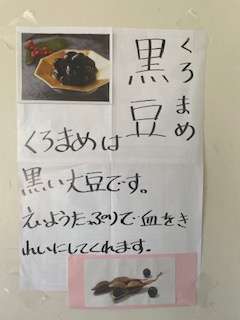 黒豆
くろまめ
くろまめは
黒い大豆です。
えいようたっぷりで血をき
れいにしてくれます。